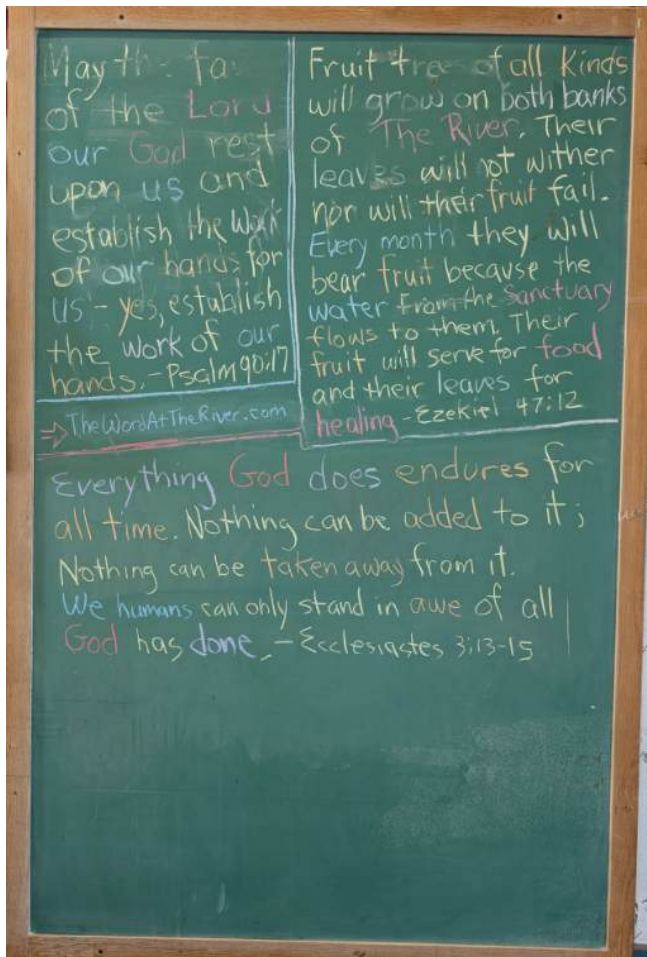 May th fa
of the Lord
our God rest
upon us and
establish the work
of our hands for
us - yes, establish
the work of our
hands. - Psalm 90:17
TheWordAtTheRiver.com
Fruit tree of all kinds
will grow on both banks
of The River. Their
leaves will not wither
nor will their fruit fail.
Every month they will
bear fruit because the
water from the Sanctuary
flows to them. Their
fruit will serve for food
and their leaves for
healing - Ezekiel 47:12
Everything God does endures for
all time. Nothing can be added to it;
Nothing can be taken away from it.
We humans can only stand in awe of all
God has done. - Ecclesiastes 3:13-15